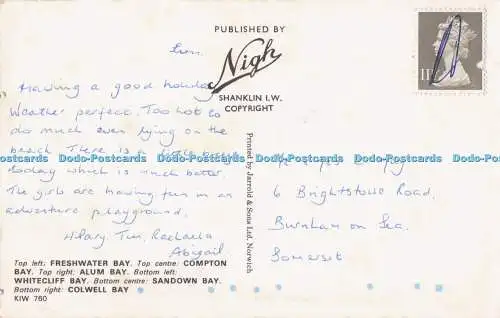 PUBLISHED BY
Nigh
SHANKLIN I.W.
COPYRIGHT
Sun.
Having a good holiday
Weather perfect. Too hot to
do much even lying on the
beach. There is a little
today which is much better.
The girls are having fun in an
adventure playground.
Hilary Tim, Rachaela
Abigail
Top left: FRESHWATER BAY. Top centre: COMPTON
BAY. Top right: ALUM BAY. Bottom left:
WHITECLIFF BAY. Bottom centre: SANDOWN BAY.
Bottom right: COLWELL BAY
KIW 760
Printed by Jarrold & Sons Ltd, Norwich
6 Brightstowe Road
Burnham on Sea.
Somerset
Dodo-Postcards Dodo-Postcards Dodo-Postcards Dodo-Postcards Dodo-Postcards